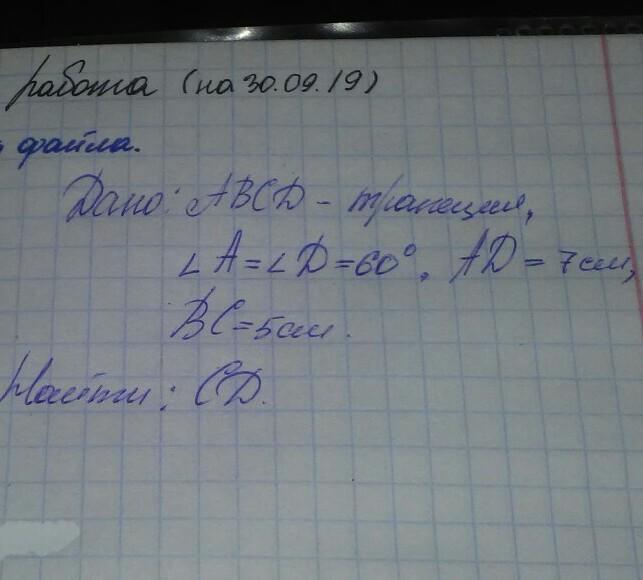 работа (на 30.09.19)
файла.
Дано: ABCD - трапеция,
∠A=∠D=60°, AD=7см,
BC=5см.
Найти: CD.